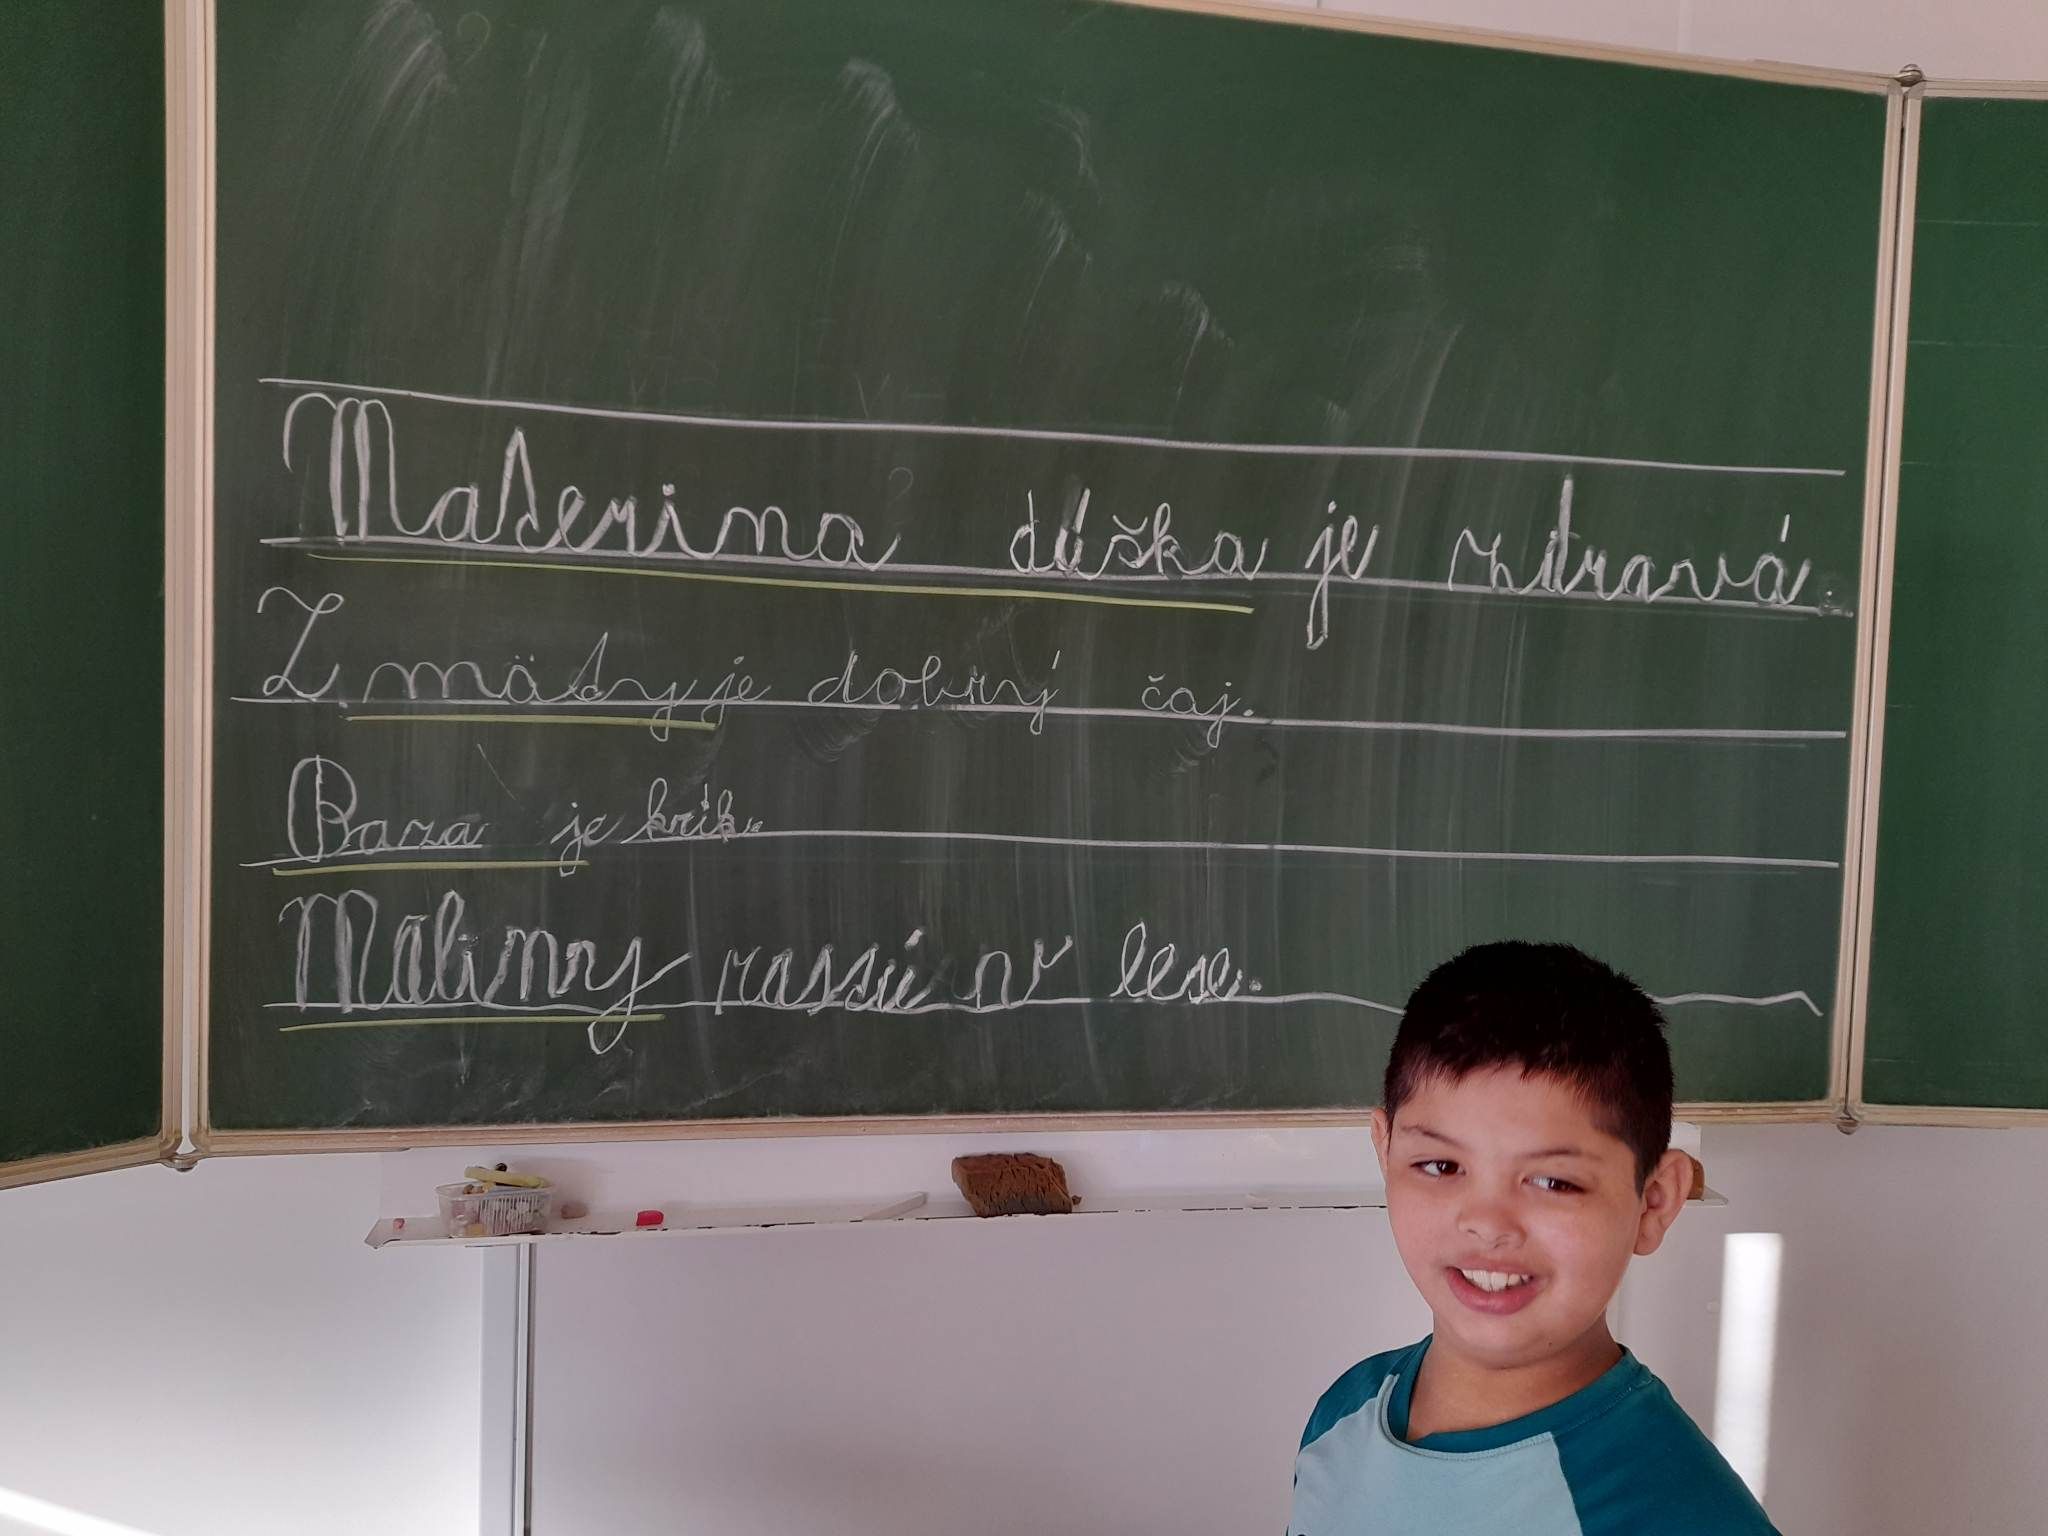 Materina dúška je zdravá.
Z mäty je dobrý čaj.
Baza je krík.
Maliny rastú v lese.